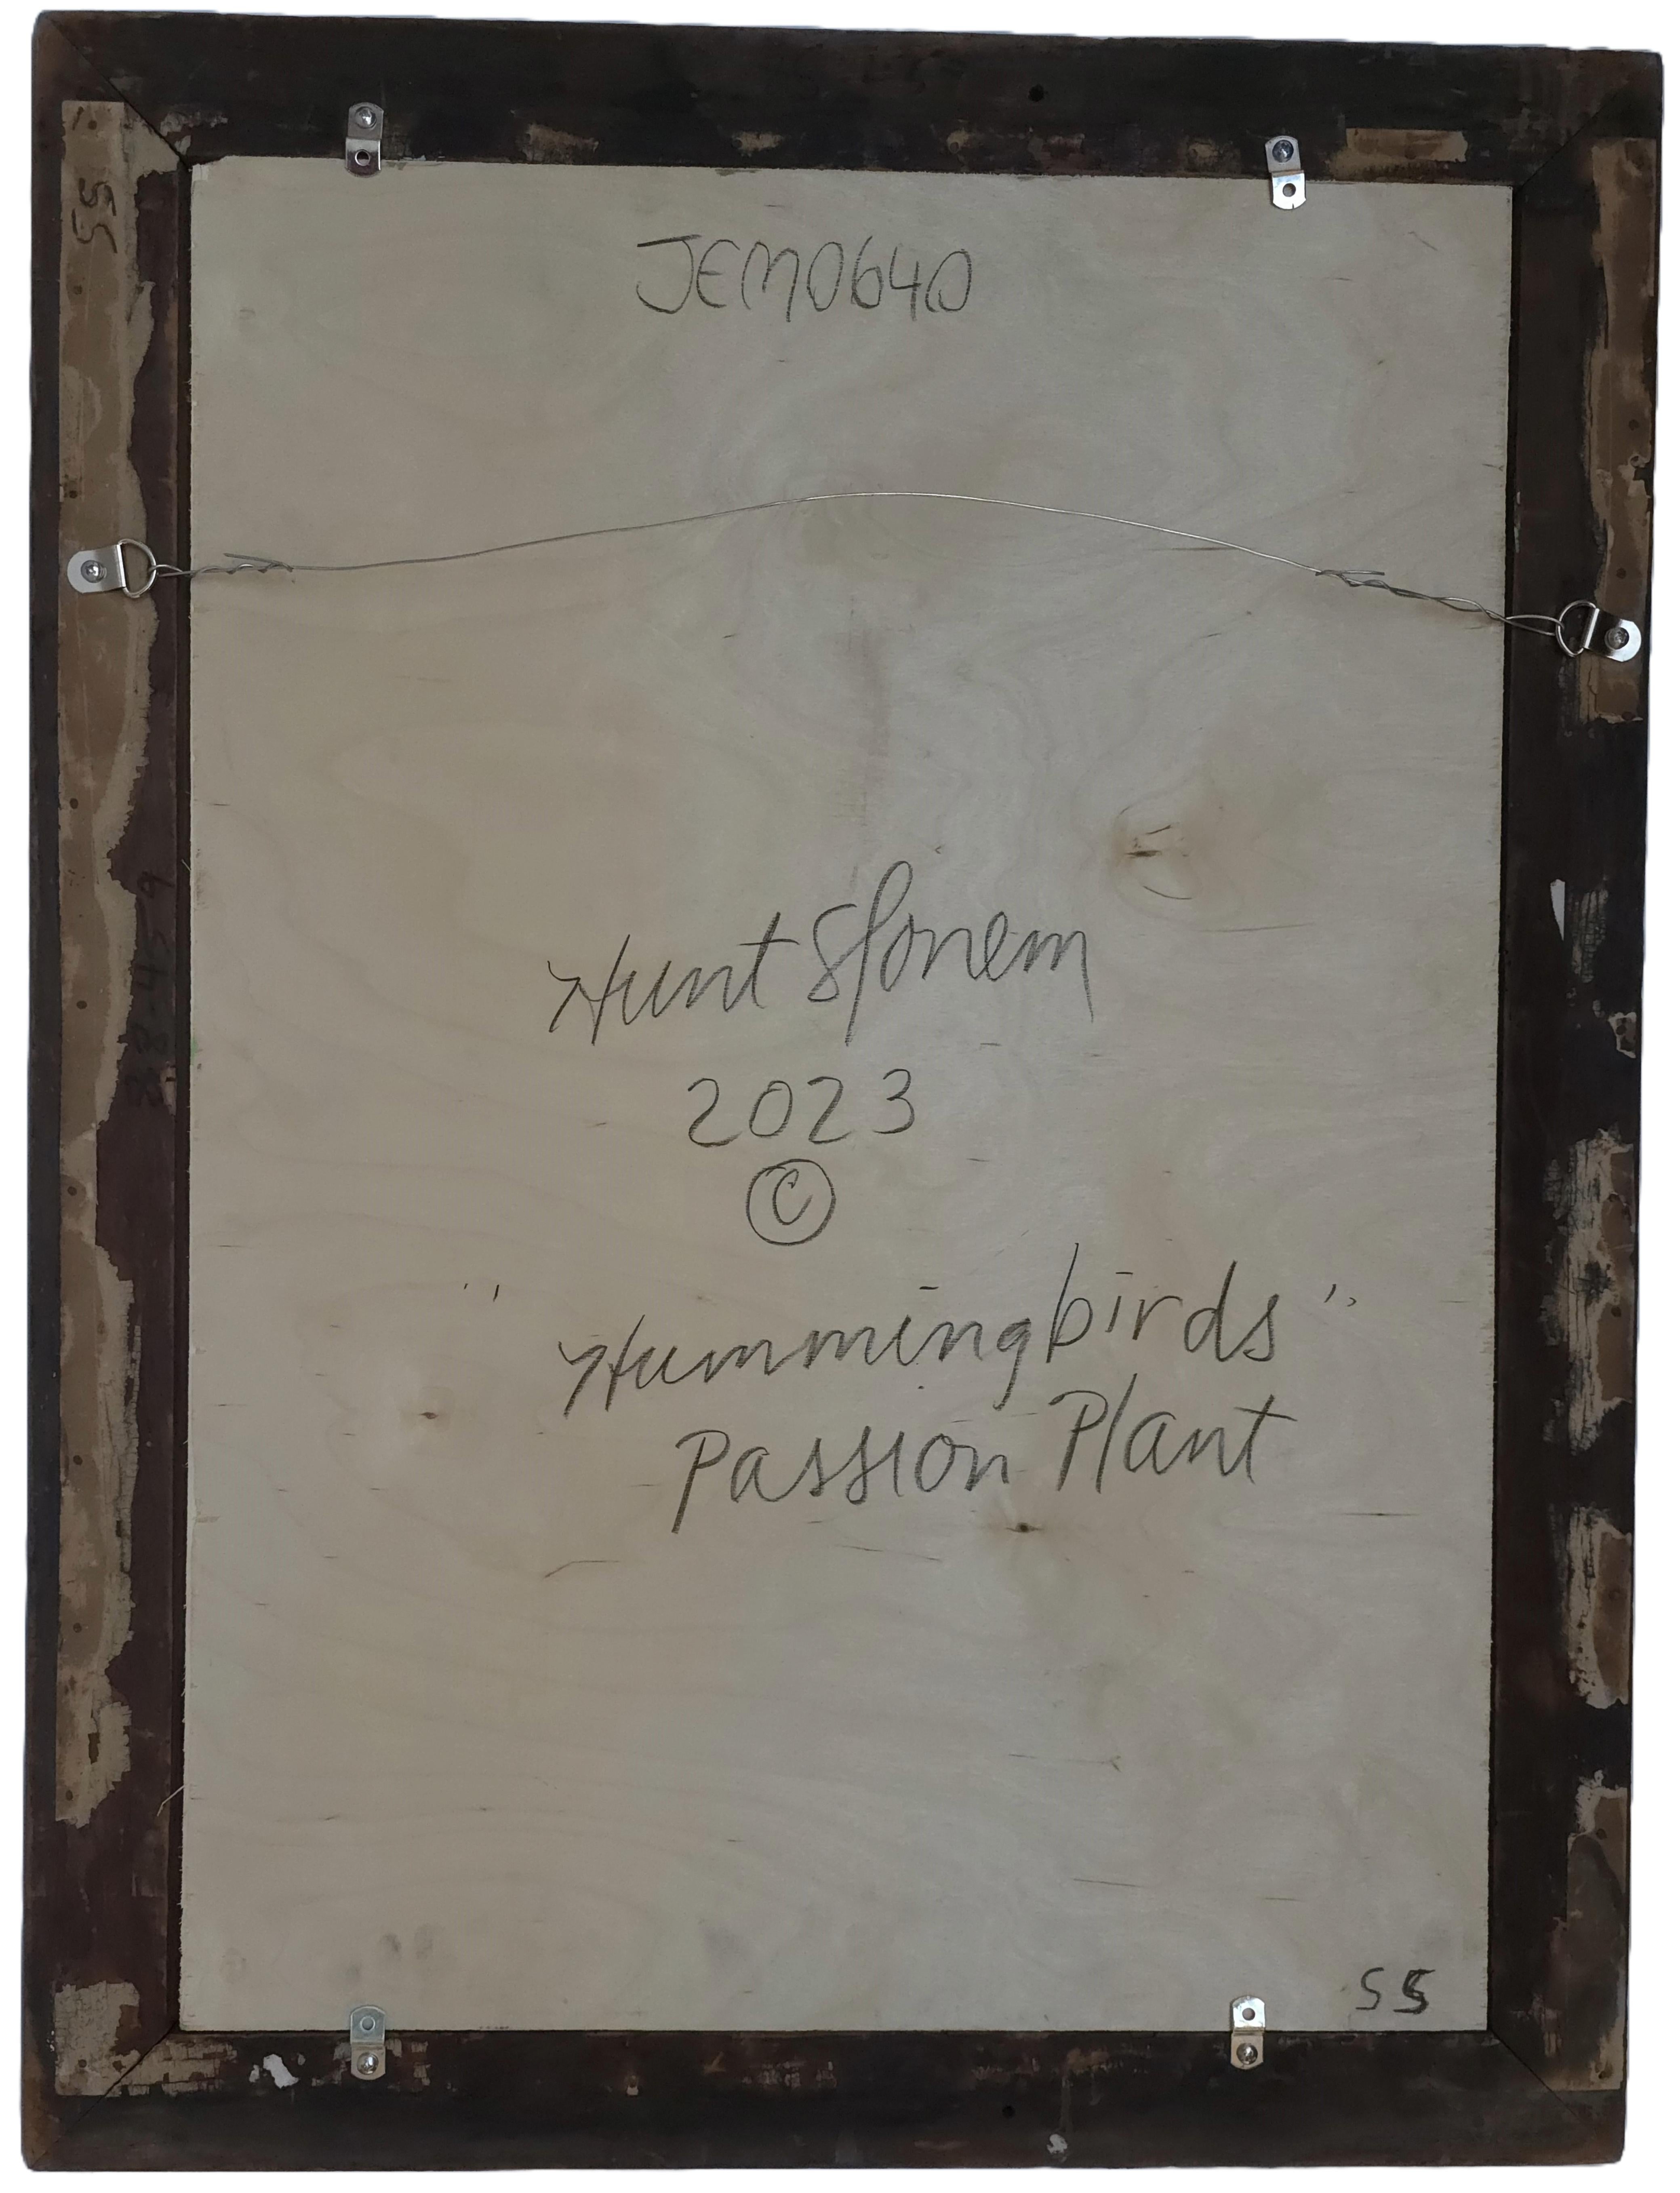 JEM0640
55
Hunt Slonem
2023
©
"Hummingbirds"
Passion Plant
55